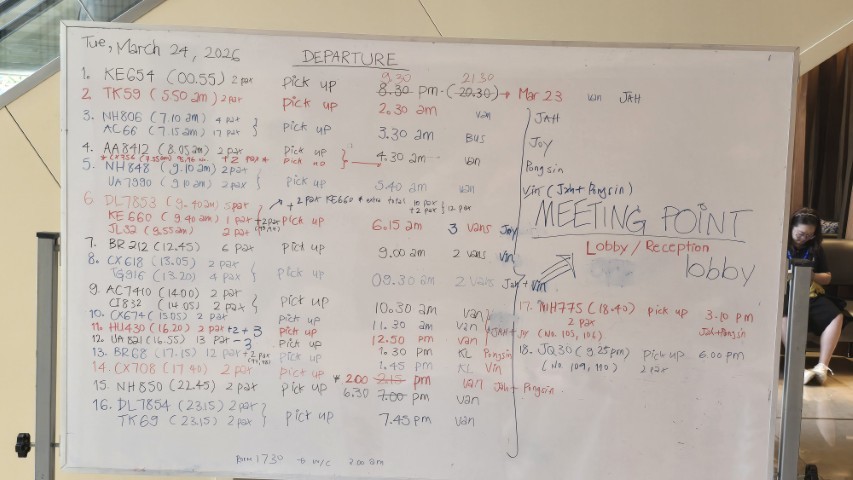 Tue, March 24, 2026
DEPARTURE
9.30 21 30
1. KE654 (00.55) 2 pax pick up 8.30 pm - (20.30) → Mar 23 van JAH
2. TK59 (5.50 am) 2 pax pick up 2.30 am van
3. NH806 (7.10 am) 4 pax
AC66 (7.15 am) 17 pax } pick up 3.30 am BUS
4. AA8412 (8.05 am) 2 pax pick up 4.30 am van
+2 pax pick up
5. NH848 (9.10 am) 2 pax
UA7990 (9.10 am) 2 pax } pick up 5.40 am van
+ 2 pax KE660 + extra total 10 pax + 2 pax } 12 pax
6. DL7853 (9.40 am) 5 pax
KE 660 (9.40 am) 1 pax + 2 pax pick up 6.15 am 3 vans Joy
JL32 (9.55 am) 2 pax
7. BR 212 (12.45) 6 pax pick up 9.00 am 2 vans Vin
8. CX618 (13.05) 2 pax
TG916 (13.20) 4 pax } pick up 09.30 am 2 vans Jah + Vin
9. AC7410 (14.00) 2 pax
CI832 (14.05) 2 pax } pick up 10.30 am van
10. CX674 (15.05) 2 pax pick up 11.30 am van
11. HU430 (16.20) 2 pax +2 +3 pick up
12. UA821 (16.55) 13 pax -3 pick up 12.50 pm van
13. BR68 (17.15) 12 pax +2 pax pick up 1.30 pm KL Pongsin
14. CX708 (17.40) 2 pax pick up 1.45 pm KL Vin
15. NH850 (22.45) 2 pax pick up
* 2.00 2.15 pm van Jah + Pongsin
6.30 7.00 pm van
16. DL7854 (23.15) 2 pax
TK69 (23.15) 2 pax } pick up 7.45 pm van
JAH
Joy
Pongsin
Vin (Jah + Pongsin)
MEETING POINT
Lobby / Reception
lobby
17. NH775 (18.40) pick up 3.10 pm
2 pax Jah + Pongsin
18. JQ30 (9.25 pm) pick up 6.00 pm
(No 109, 110) 2 pax
1730